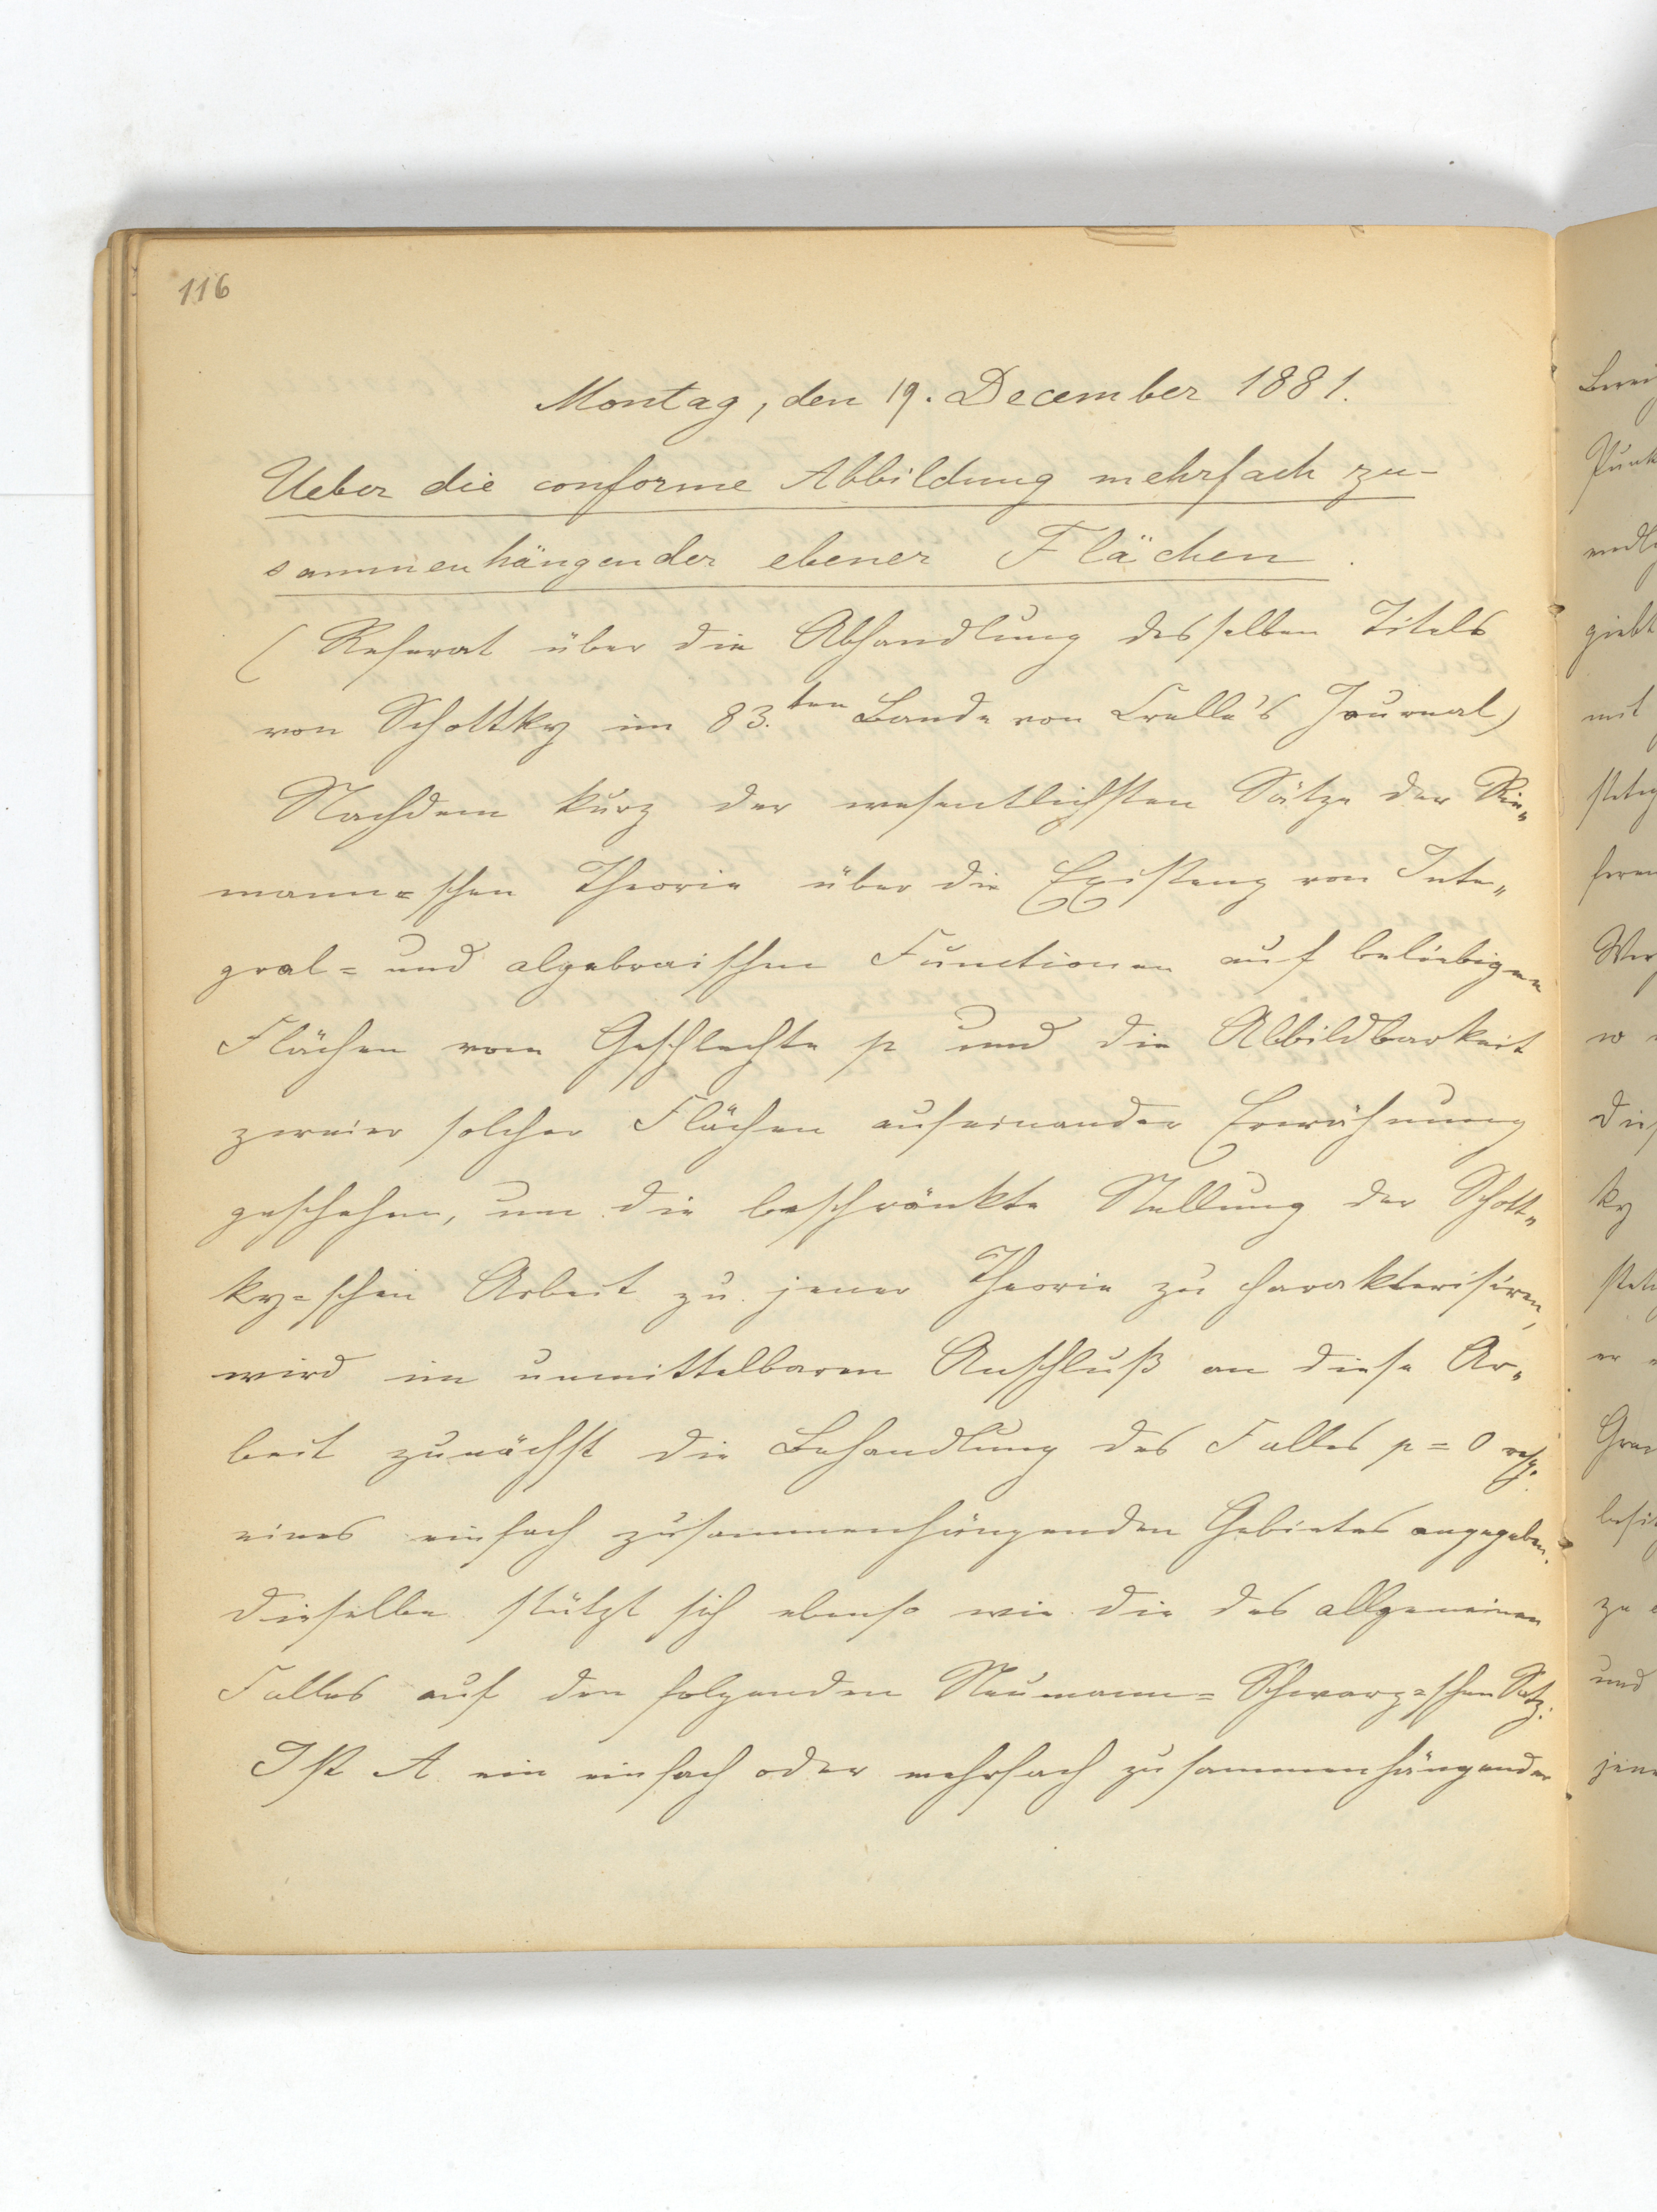 116
Montag, den 19. December 1881.
Ueber die conforme Abbildung mehrfach zu-
sammenhängender ebener Flächen.
(Referat über die Abhandlung desselben Titels
von Schottky im 83.ten Bande von Crelle's Journal)
Nachdem kurz der wesentlichsten Sätze der Rie-
mann=schen Theorie über die Existenz von Inte-
gral= und algebraischen Functionen auf beliebigen
Flächen vom Geschlechte p und die Abbildbarkeit
zweier solcher Flächen aufeinander Erwähnung
geschehen, um die beschränkte Stellung der Schott-
ky=schen Arbeit zu jener Theorie zu charakterisiren,
wird im unmittelbaren Anschluß an diese Ar-
beit zunächst die Behandlung des Falles p = 0 resp.
eines einfach zusammenhängenden Gebietes angegeben.
Dieselbe stützt sich ebenso wie die des allgemeinen
Falles auf den folgenden Neumann=Schwarz=schen Satz:
Ist A ein einfach oder mehrfach zusammenhängender
Punk
giebt
mit
w
ky
er
zu
und